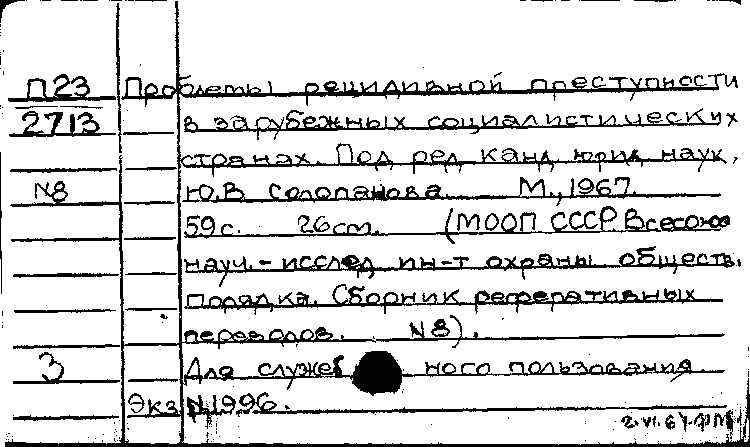 П23 Проблемы рецидивной преступности
2713 в зарубежных социалистических
странах. Под ред. канд. юрид. наук,
N8 Ю.В Солопанова. М., 1967.
59 с. 26 см. (МООП СССР Всесоюз
науч.-исслед. ин-т охраны обществ.
порядка. Сборник реферативных
переводов. N8).
3 Для служебного пользования.
Экз N1996.